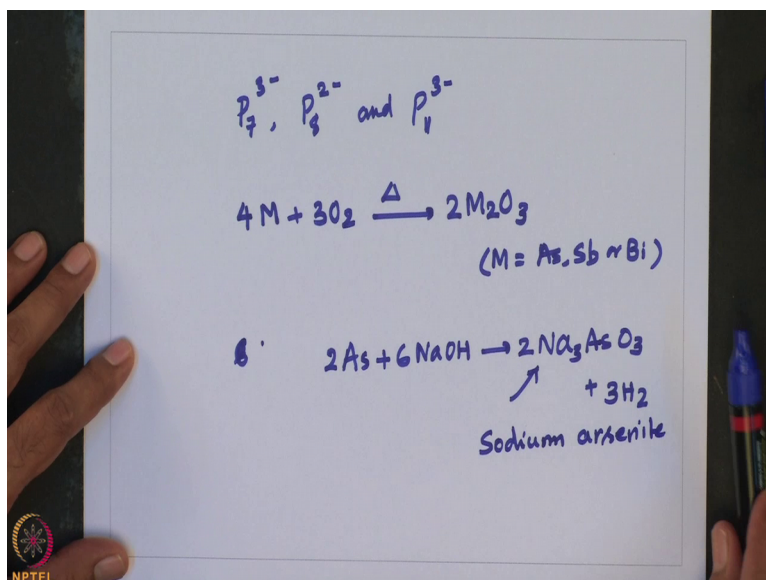 P₇³⁻, P₈²⁻ and P₁₁³⁻
4M + 3O₂ —Δ→ 2M₂O₃
(M = As, Sb or Bi)
2As + 6NaOH → 2Na₃AsO₃
+ 3H₂
Sodium arsenite
NPTEL